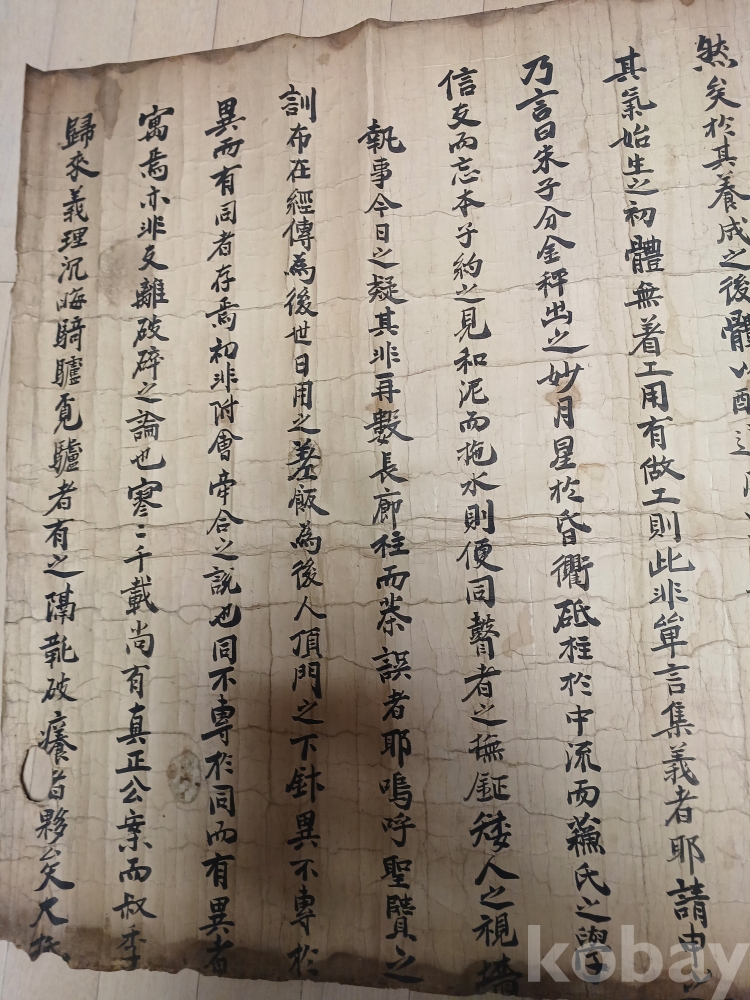 然矣於其養成之後體以配道
其氣始生之初體無着工用有做工則此非單言集義者耶請申
乃言曰朱子分金秤出之妙月星於昏衢砥柱於中流而蘓氏之學
信友而忘本子約之見和泥而拖水則便同瞽者之撫鉦矮人之視墻
執事今日之疑其非再數長廊柱而榮誤者耶嗚呼聖贒之
訓布在經傳為後世日用之羞飯為後人頂門之下針異不專於
異而有同者存焉初非附會牽合之說也同不專於同而有異者
寓焉亦非支離破碎之論也寥〻千載尚有真正公案而叔季
歸來義理沉晦騎驢覓驢者有之隔靴破癢者夥矣大抵
kobay